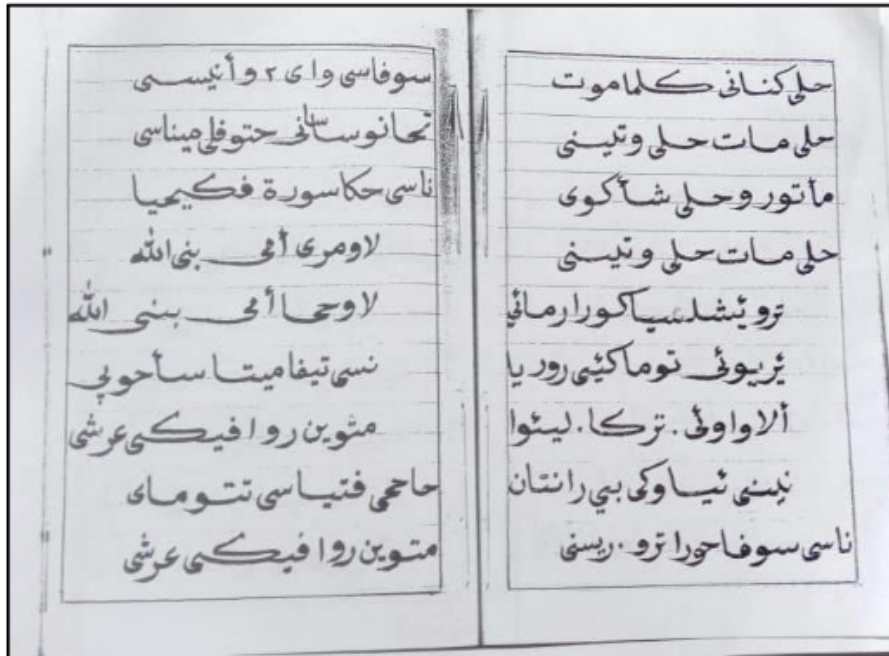 حلي كناني كلما موت
حلي مات حلي وتيني
مأتور وحلي شأ كوى
حلي مات حلي وتيني
ترو يشلسيا كورا رمائي
يريوئي توماكيي رور يا
ألا واوئي . تركا . ليئوا
نيني ئيا وكى بي را نتان
ناسى سوفا حورا ترو . ريسني
سوفاسي واى ٢ وأنيسى
تحانوساني حتوفلي ميناسى
ناسى حكا سورة فكيحيا
لاومرى أمى بنى الله
لاوحا أمى بنى الله
نسى تيفا ميتا سأحوبي
متوين روا فيكى عرشى
حاححي فتياسى نتوماى
متوين روا فيكى عرشى